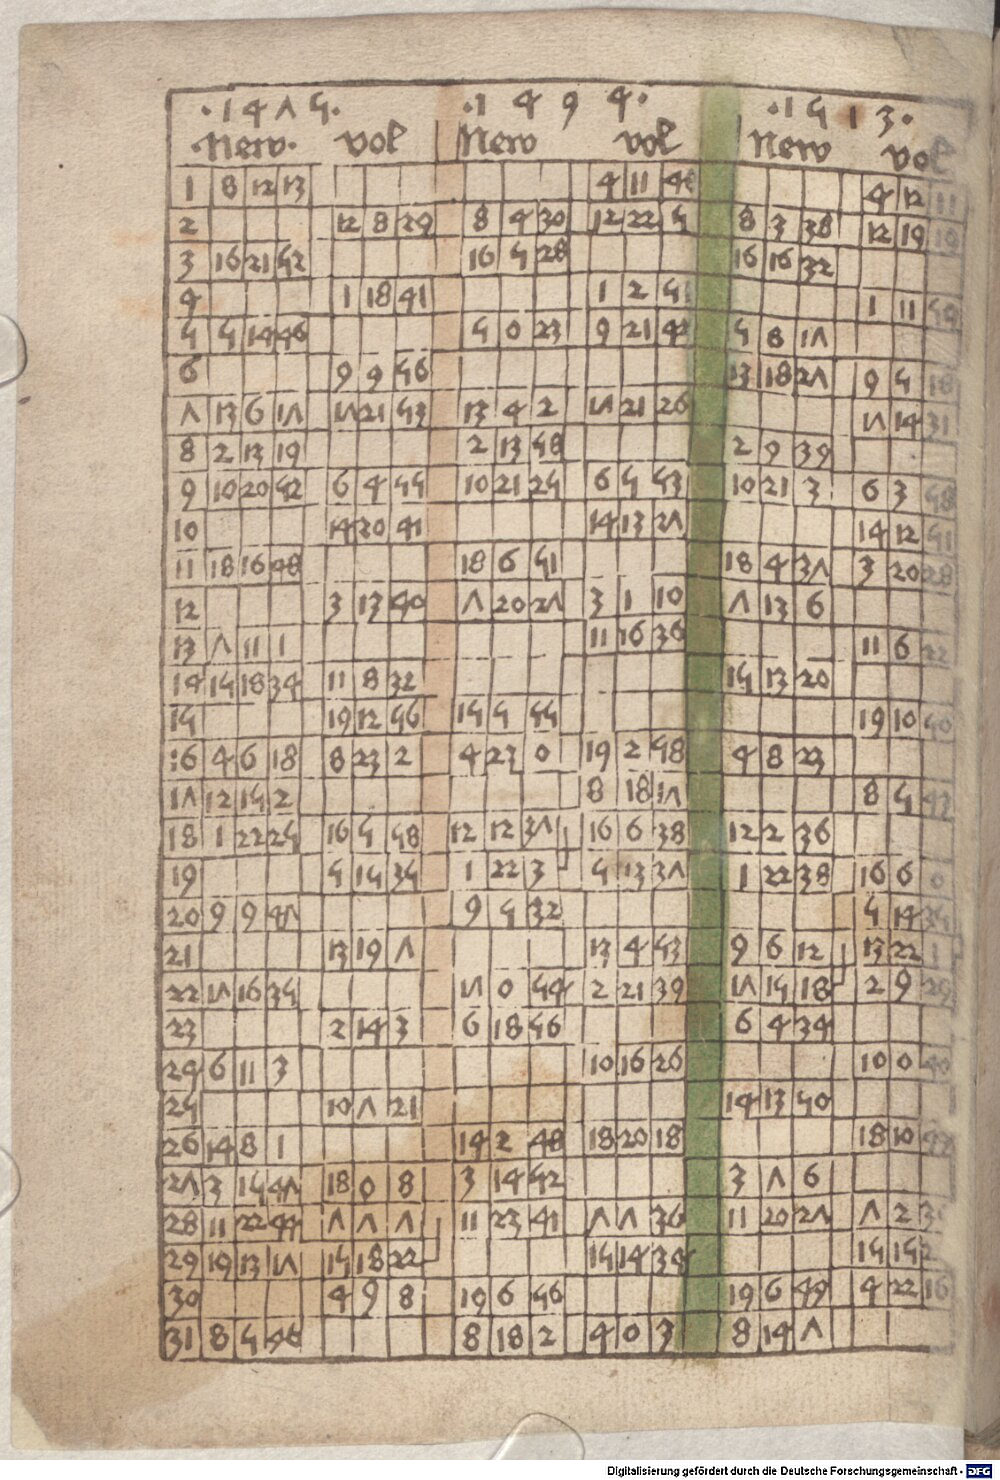 ·1475· ·1494· ·1513·
·New· vol New vol New vol
1 8 12 13 4 11 4 12 11
2 12 8 29 8 4 30 12 22 5 8 3 38 12 19 19
3 16 21 52 16 5 28 16 16 32
4 1 18 41 1 2 1 11 59
5 5 14 46 5 0 23 9 21 42 5 8 17
6 9 9 56 13 18 27 9 5 18
7 13 6 17 17 21 53 13 4 2 17 21 26 17 14 31
8 2 13 19 2 13 58 2 9 39
9 10 20 52 6 4 55 10 21 25 6 5 53 10 21 3 6 3 58
10 14 20 41 14 13 27 14 12 51
11 18 16 48 18 6 51 18 4 37 3 20 28
12 3 13 40 7 20 27 3 1 10 7 13 6
13 7 11 1 11 16 36 11 6 22
14 15 18 34 11 8 32 15 13 20
15 19 12 56 15 5 55 19 10 50
16 4 6 18 8 23 2 4 23 0 19 2 58 4 8 23
17 12 15 2 8 18 17 8 5 43
18 1 22 25 16 5 58 12 12 37 16 6 38 12 2 36
19 5 15 35 1 22 3 5 13 37 1 22 38 16 6 0
20 9 9 47 9 5 32 5 14 35
21 13 19 7 13 4 53 9 6 12 13 22 1
22 17 16 35 17 0 54 2 21 39 17 15 18 2 9 29
23 2 14 3 6 18 56 6 4 34
24 6 11 3 10 16 26 10 0 40
25 10 7 21 14 13 50
26 14 8 1 14 2 48 18 20 18 18 10 42
27 3 15 47 18 0 8 3 14 52 3 7 6
28 11 22 44 7 7 7 11 23 41 7 7 36 11 20 27 7 2
29 19 13 17 15 18 22 15 14 34 15 15
30 4 9 8 19 6 56 19 6 49 4 22 16
31 8 5 46 8 18 2 4 0 3 8 14 7
Digitalisierung gefördert durch die Deutsche Forschungsgemeinschaft - DFG